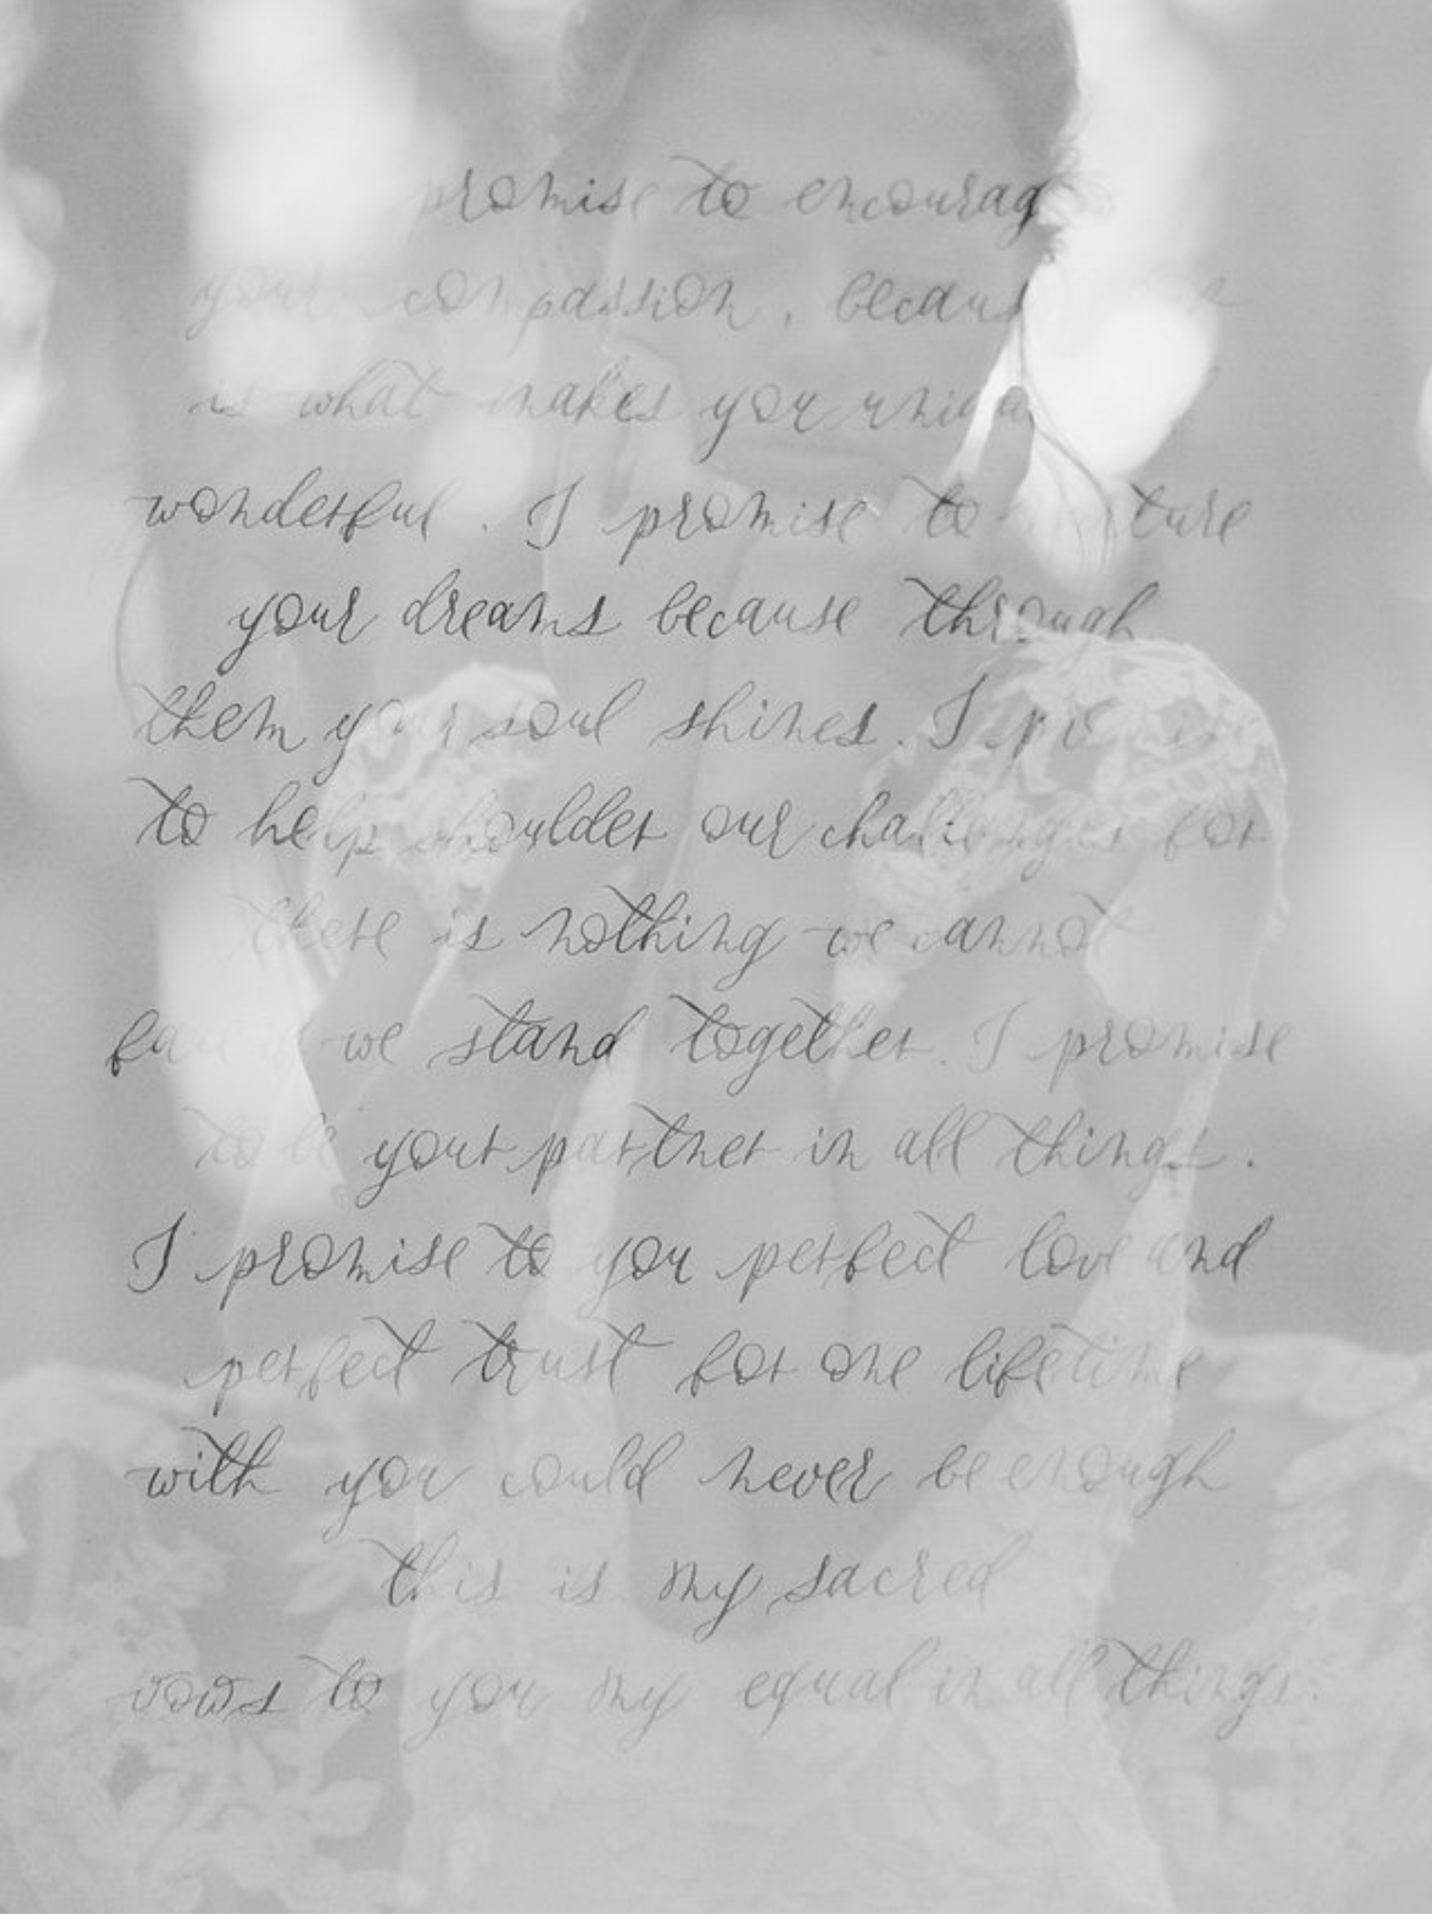 promise to encourag
your compassion, becaus
is what makes you
wonderful. I promise to
your dreams because through
them your soul shines. I promise
to help shoulder our challenges for
there is nothing we cannot
we stand together. I promise
to be your partner in all things.
I promise to you perfect love and
perfect trust for one lifetime
with you could never be enough
this is my sacred
vows to you my equal in all things.